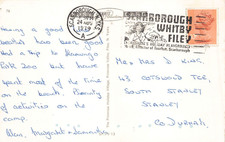 SCARBOROUGH
24
SCARBOROUGH
WHITBY
FILEY
Having a good
weather has been good
and a trip to Flamingo
Park Zoo but have
spent most of the time
on the beach. Plenty
of activities on the
camp.
Alan, Margaret +
Mr + Mrs D King,
43 COTSWOLD TEE,
SOUTH
STANLEY
STANLEY
Co. DURHAM.